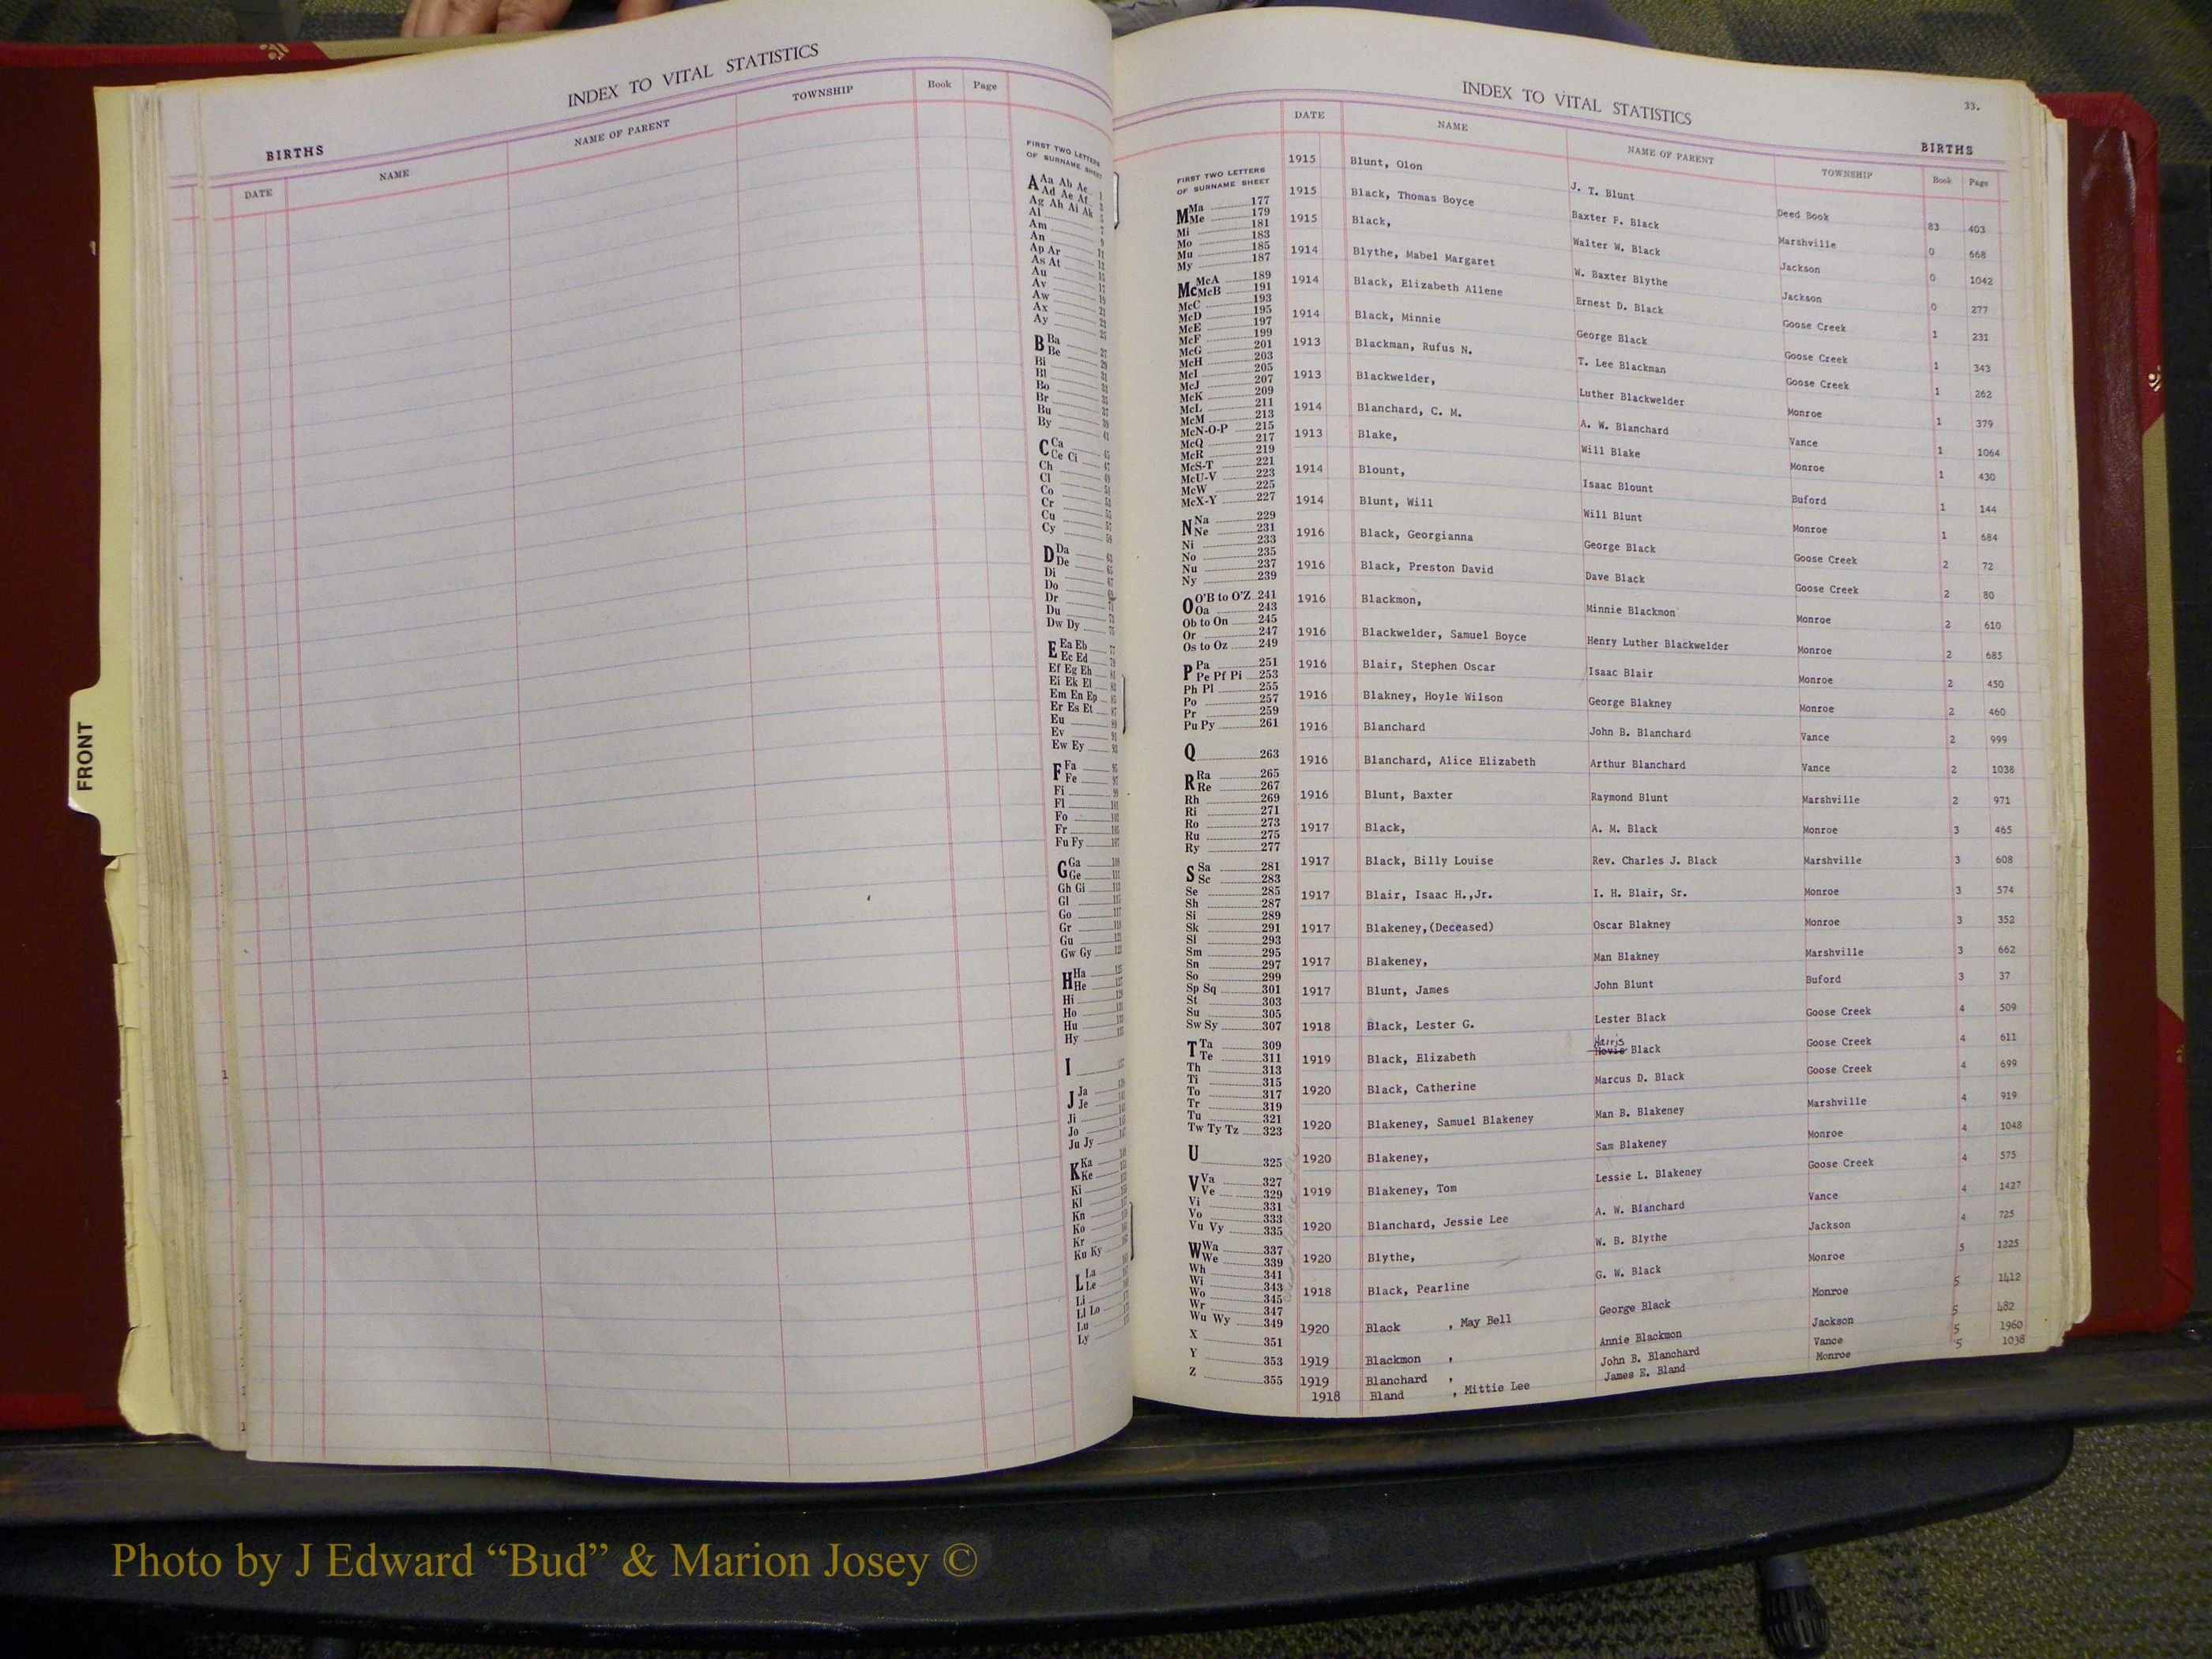 INDEX TO VITAL STATISTICS
BIRTHS
DATE NAME NAME OF PARENT TOWNSHIP Book Page
FRONT
FIRST TWO LETTERS
OF SURNAME SHEET
A Aa Ab Ac
Ad Ae Af
Ag Ah Ai Ak
Al
Am
An
Ap Ar
As At
Au
Av
Aw
Ax
Ay
B Ba
Be
Bi
Bl
Bo
Br
Bu
By
C Ca
Ce Ci
Ch
Cl
Co
Cr
Cu
Cy
D Da
De
Di
Do
Dr
Du
Dw Dy
E Ea Eb
Ec Ed
Ef Eg Eh
Ei Ek El
Em En Ep
Er Es Et
Eu
Ev
Ew Ey
F Fa
Fe
Fi
Fl
Fo
Fr
Fu Fy
G Ga
Ge
Gh Gi
Gl
Go
Gr
Gu
Gw Gy
H Ha
He
Hi
Ho
Hu
Hy
I
J Ja
Je
Ji
Jo
Ju Jy
K Ka
Ke
Ki
Kl
Kn
Ko
Kr
Ku Ky
L La
Le
Li
Ll Lo
Lu
Ly
INDEX TO VITAL STATISTICS
33.
BIRTHS
DATE NAME NAME OF PARENT TOWNSHIP Book Page
FIRST TWO LETTERS
OF SURNAME SHEET
M Ma 177
Me 179
Mi 181
Mo 183
Mu 185
My 187
Mc McA 189
McB 191
McC 193
McD 195
McE 197
McF 199
McG 201
McH 203
McI 205
McJ 207
McK 209
McL 211
McM 213
McN-O-P 215
McQ 217
McR 219
McS-T 221
McU-V 223
McW 225
McX-Y 227
N Na 229
Ne 231
Ni 233
No 235
Nu 237
Ny 239
O O'B to O'Z 241
Oa 243
Ob to On 245
Or 247
Os to Oz 249
P Pa 251
Pe Pf Pi 253
Ph Pl 255
Po 257
Pr 259
Pu Py 261
Q 263
R Ra 265
Re 267
Rh 269
Ri 271
Ro 273
Ru 275
Ry 277
S Sa 281
Sc 283
Se 285
Sh 287
Si 289
Sk 291
Sl 293
Sm 295
Sn 297
So 299
Sp Sq 301
St 303
Su 305
Sw Sy 307
T Ta 309
Te 311
Th 313
Ti 315
To 317
Tr 319
Tu 321
Tw Ty Tz 323
U 325
V Va 327
Ve 329
Vi 331
Vo 333
Vu Vy 335
W Wa 337
We 339
Wh 341
Wi 343
Wo 345
Wr 347
Wu Wy 349
X 351
Y 353
Z 355
1915 Blunt, Olon J. T. Blunt Deed Book 83 403
1915 Black, Thomas Boyce Baxter P. Black Marshville 0 668
1915 Black, Walter W. Black Jackson 0 1042
1914 Blythe, Mabel Margaret W. Baxter Blythe Jackson 0 277
1914 Black, Elizabeth Allene Ernest D. Black Goose Creek 1 231
1914 Black, Minnie George Black Goose Creek 1 343
1913 Blackman, Rufus N. T. Lee Blackman Goose Creek 1 262
1913 Blackwelder, Luther Blackwelder Monroe 1 379
1914 Blanchard, C. M. A. W. Blanchard Vance 1 1064
1913 Blake, Will Blake Monroe 1 430
1914 Blount, Isaac Blount Buford 1 144
1914 Blunt, Will Will Blunt Monroe 1 684
1916 Black, Georgianna George Black Goose Creek 2 72
1916 Black, Preston David Dave Black Goose Creek 2 80
1916 Blackmon, Minnie Blackmon Monroe 2 610
1916 Blackwelder, Samuel Boyce Henry Luther Blackwelder Monroe 2 685
1916 Blair, Stephen Oscar Isaac Blair Monroe 2 450
1916 Blakney, Hoyle Wilson George Blakney Monroe 2 460
1916 Blanchard John B. Blanchard Vance 2 999
1916 Blanchard, Alice Elizabeth Arthur Blanchard Vance 2 1038
1916 Blunt, Baxter Raymond Blunt Marshville 2 971
1917 Black, A. M. Black Monroe 3 465
1917 Black, Billy Louise Rev. Charles J. Black Marshville 3 608
1917 Blair, Isaac H.,Jr. I. H. Blair, Sr. Monroe 3 574
1917 Blakeney,(Deceased) Oscar Blakney Monroe 3 352
1917 Blakeney, Man Blakney Marshville 3 662
1917 Blunt, James John Blunt Buford 3 37
1918 Black, Lester G. Lester Black Goose Creek 4 509
1919 Black, Elizabeth Harris Black Goose Creek 4 611
1920 Black, Catherine Marcus D. Black Goose Creek 4 699
1920 Blakeney, Samuel Blakeney Man B. Blakeney Marshville 4 919
1920 Blakeney, Sam Blakeney Monroe 4 1048
1919 Blakeney, Tom Lessie L. Blakeney Goose Creek 4 575
1920 Blanchard, Jessie Lee A. W. Blanchard Vance 4 1427
1920 Blythe, W. B. Blythe Jackson 4 725
1918 Black, Pearline G. W. Black Monroe 5 1225
1920 Black , May Bell George Black Monroe 5 1412
1919 Blackmon , Annie Blackmon Jackson 5 482
1919 Blanchard , John B. Blanchard Vance 5 1960
1918 Bland , Mittie Lee James E. Bland Monroe 5 1038
Photo by J Edward “Bud” & Marion Josey ©